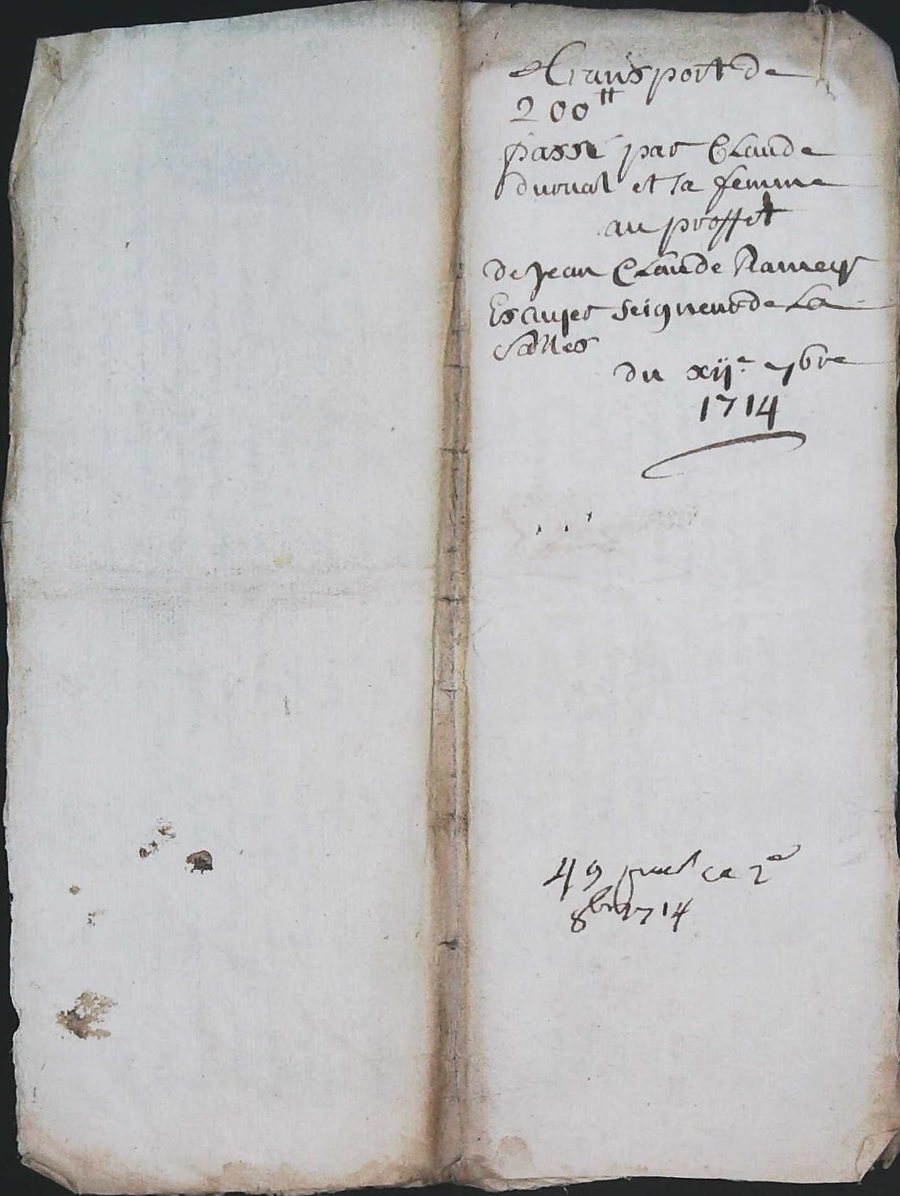 transport de
200 ₶
passé par Claude
duvual et sa femme
au proffit
de Jean Claude Rameys
Escuyer seigneur de La
salles
du xije 7bre
1714
49 ce 2e
8bre 1714